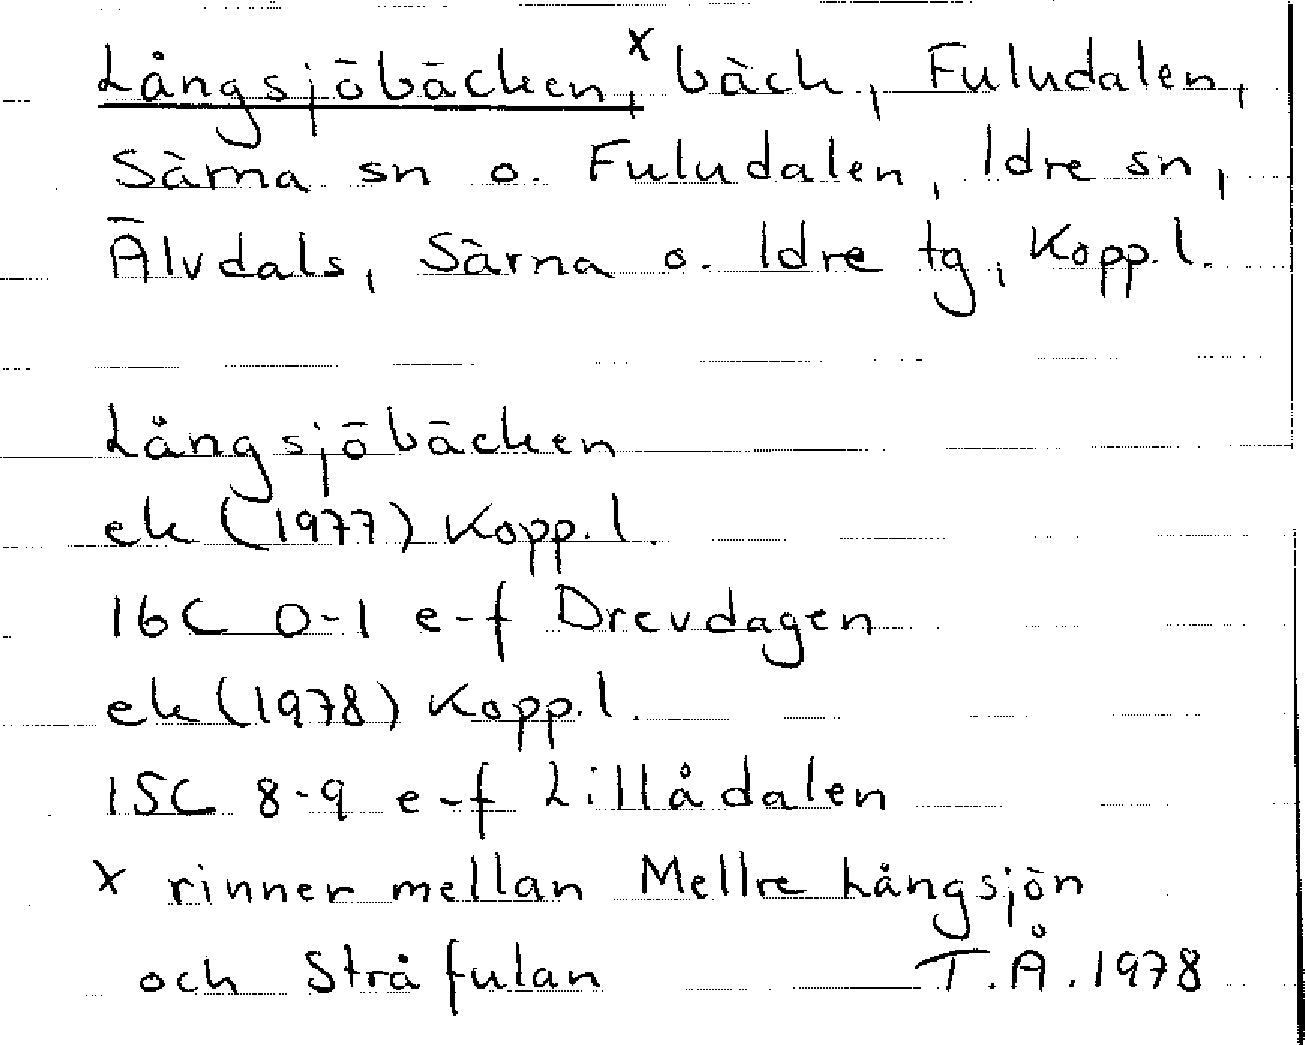 Långsjöbäcken,ˣ bäck, Fuludalen,
Särna sn o. Fuludalen, Idre sn,
Älvdals, Särna o. Idre tg, Kopp. l.
Långsjöbäcken
ek (1977) Kopp. l.
16C 0-1 e-f Drevdagen
ek (1978) Kopp. l.
15C 8-9 e-f Lillådalen
x rinner mellan Mellre Långsjön
och Stråfulan T.Å. 1978